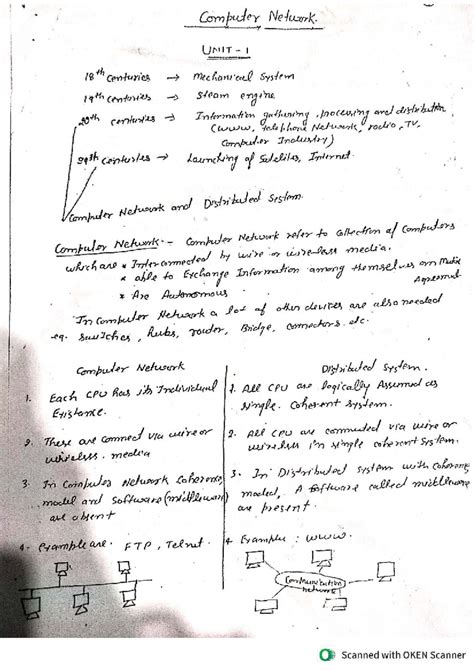 Computer Network.
UNIT-1
18th centuries → Mechanical System
19th centuries → Steam engine
20th centuries → Information gathering, processing and distribution
(www, telephone Network, radio, TV,
Computer Industry)
20th centuries → Launching of Satelites, Internet.
Computer Network and Distributed System.
Computer Network:- Computer Network refer to collection of Computers
which are * Interconnected by wire or wireless media.
* able to Exchange Information among themselves on Mutual
Agreement
* Are Autonomous
In Computer Network a lot of other devices are also needed
eg. switches, Hubs, router, Bridge, connectors. etc.
Computer Network
1. Each CPU has its Individual
Existance.
2. These are connect via wire or
wireless. media
3. In Computer Network Coherence,
model and Software (middleware)
are absent
4. Example are. FTP, Telnet.
Distributed System.
1. All CPU are logically Assumed as
single. Coherent system.
2. All CPU are connected via wire or
wireless in single coherent System.
3. In Distributed system with
model, A Software called middleware
are present.
4. Example: www.
Communication
network
Scanned with OKEN Scanner